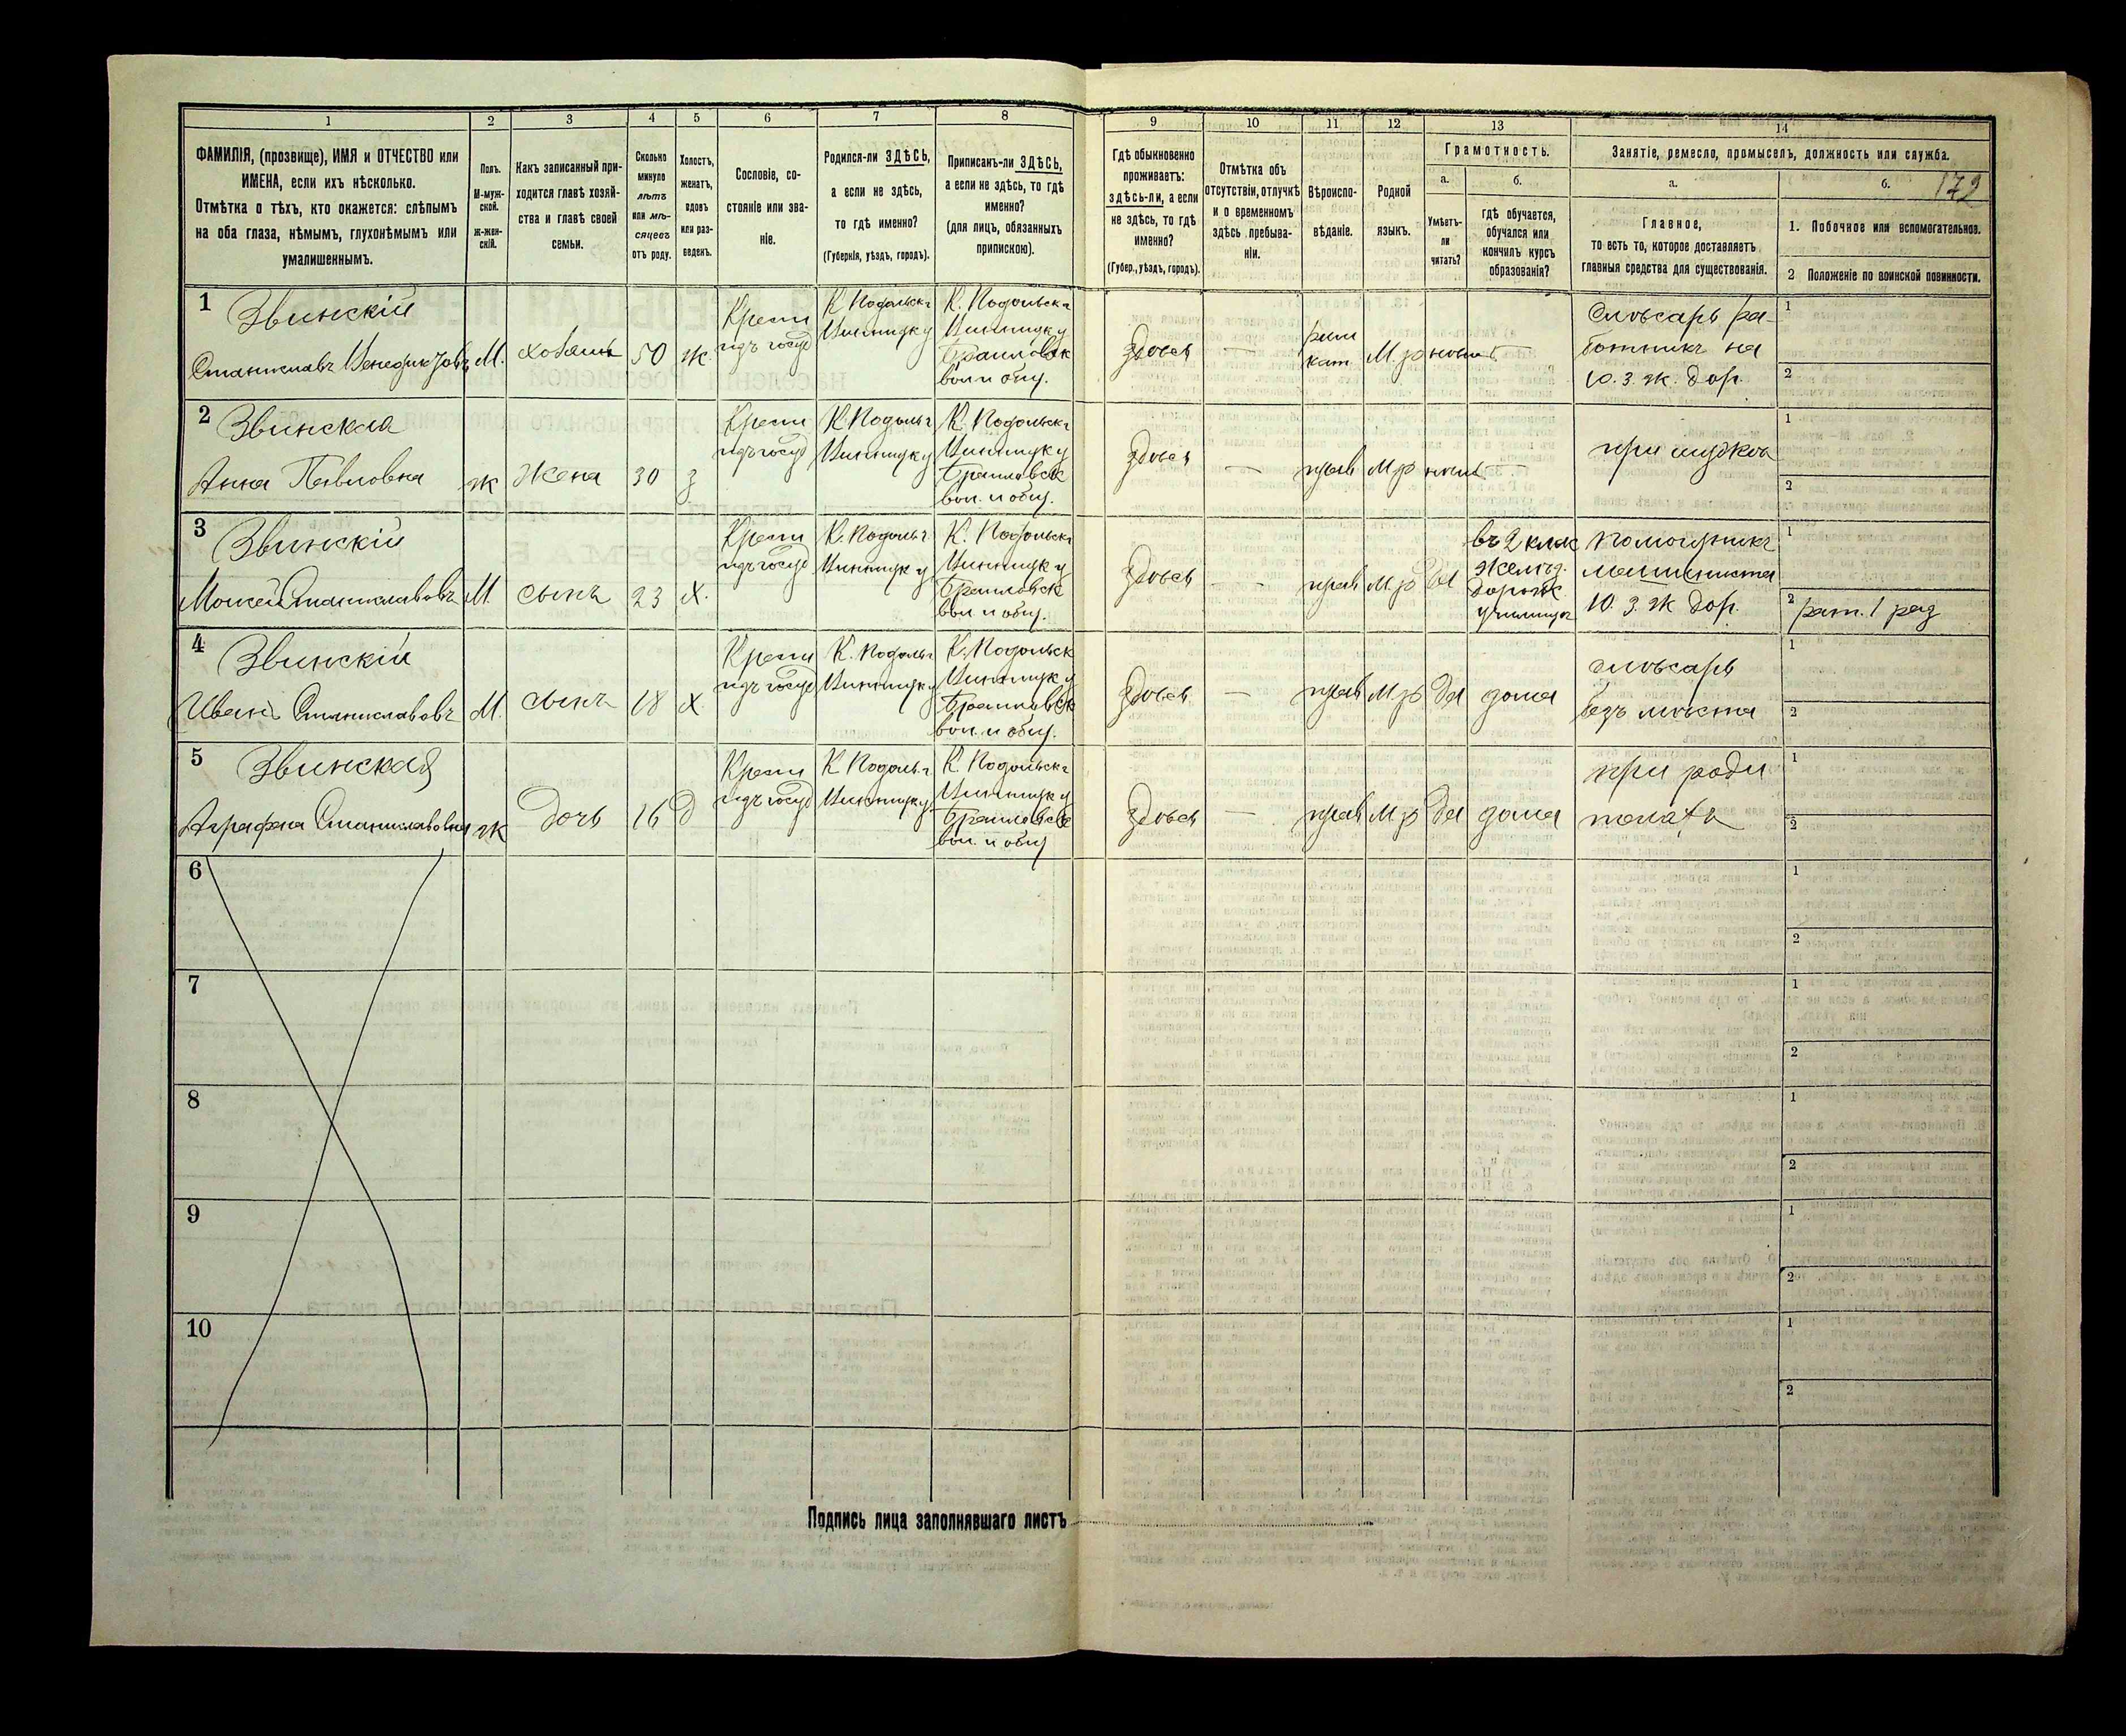 1 2 3 4 5 6 7 8 9 10 11 12 13 14
ФАМИЛІЯ, (прозвище), ИМЯ и ОТЧЕСТВО или
ИМЕНА, если ихъ нѣсколько.
Отмѣтка о тѣхъ, кто окажется: слѣпымъ
на оба глаза, нѣмымъ, глухонѣмымъ или
умалишеннымъ.
Полъ.
М-муж-
ской.
Ж-жен-
скій.
Какъ записанный при-
ходится главѣ хозяй-
ства и главѣ своей
семьи.
Сколько
минуло
лѣтъ
или мѣ-
сяцевъ
отъ роду.
Холостъ,
женатъ,
вдовъ
или раз-
веденъ.
Сословіе, со-
стояніе или зва-
ніе.
Родился-ли ЗДѢСЬ,
а если не здѣсь,
то гдѣ именно?
(Губернія, уѣздъ, городъ).
Приписанъ-ли ЗДѢСЬ,
а если не здѣсь, то гдѣ
именно?
(для лицъ, обязанныхъ
припискою).
Гдѣ обыкновенно
проживаетъ:
здѣсь-ли, а если
не здѣсь, то гдѣ
именно?
(Губер., уѣздъ, городъ).
Отмѣтка объ
отсутствіи, отлучкѣ
и о временномъ
здѣсь пребыва-
ніи.
Вѣроиспо-
вѣданіе.
Родной
языкъ.
Грамотность.
а.
Умѣетъ-
ли
читать?
б.
гдѣ обучается,
обучался или
кончилъ курсъ
образованія?
Занятіе, ремесло, промыселъ, должность или служба.
а.
Главное,
то есть то, которое доставляетъ
главныя средства для существованія.
б.
179
1. Побочное или вспомогательное.
2 Положеніе по воинской повинности.
1
Звинскій
Станиславъ
М.
хозяинъ
50
ж.
Крест
изъ госуд
К Подольск
Винниц у
К. Подольск
Винниц у
Браиловск
вол и общ.
здѣсь
—
рим
кат
Слѣсарь ра-
ботникъ на
Ю. З. ж. дор.
1
2
2
Звинская
Анна Павловна
ж
жена
30
з
Крест
изъ госуд
К Подольс
Винниц у
К. Подольск
Винниц у
Браиловск
вол. и общ.
здѣсь
—
прав
при мужѣ
1
2
3
Звинскій
Моисей Станиславовъ
М.
сынъ
23
х.
Крест
изъ госуд
К. Подольс
Винниц у
К. Подольск
Винниц у
Браиловск
вол. и общ.
здѣсь
—
прав
да
въ 2 клас
желѣз.
дорож
училищѣ
помощникъ
машиниста
Ю. З. ж дор.
1
2 рат. 1 раз
4
Звинскій
Иванъ Станиславовъ
М.
сынъ
18
х
Крест
изъ госуд
К. Подольс
Винниц у
К. Подольск
Винниц у
Браиловск
вол. и общ.
здѣсь
—
прав
да
дома
слѣсарь
безъ мѣста
1
2
5
Звинская
Аграфена Станиславовна
ж
дочь
16
д
Крест
изъ госуд
К Подольс
Винниц у
К. Подольск
Винниц у
Браиловск
вол. и общ
здѣсь
—
прав
да
дома
при роди
теляхъ
1
2
6
1
2
7
1
2
8
1
2
9
1
2
10
1
2
Подпись лица заполнявшаго листъ